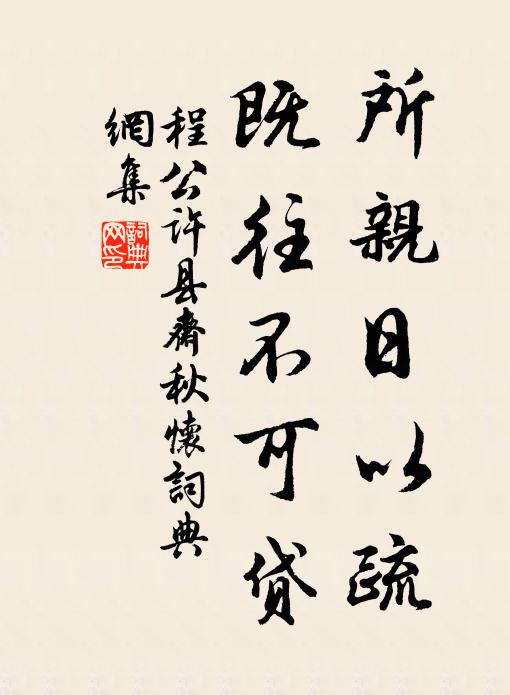 所親日以疏
既往不可贷
程公许县齋秋懷詞典
網集
詞典网印